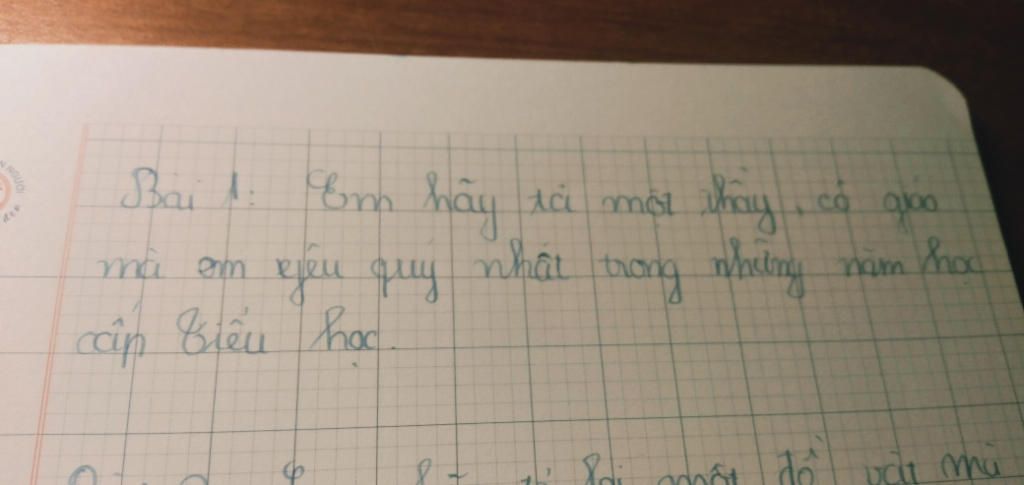 Bài 1: Em hãy tả một thầy, cô giáo
mà em yêu quý nhất trong những năm học
cấp Tiểu học.
đồ vật mà
NGƯỜI